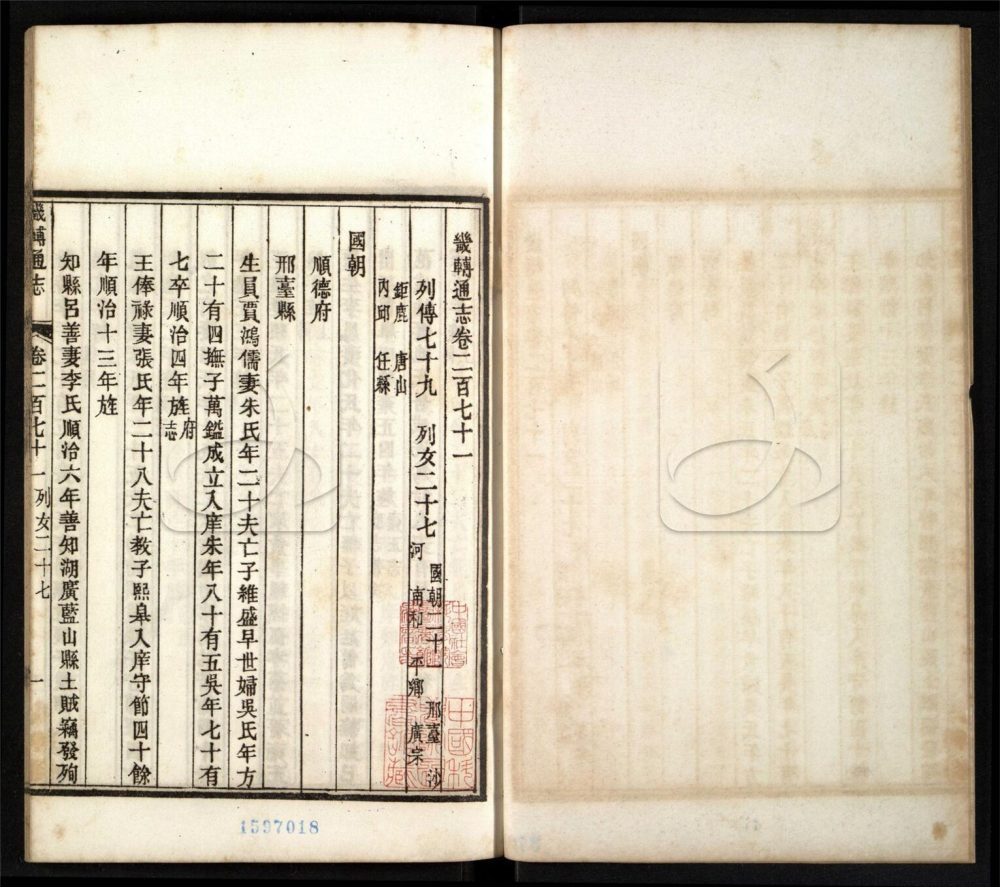 畿輔通志卷二百七十一
列傳七十九 列女二十七 國朝二十一 邢臺 沙
河 南和 平鄉 廣宗
鉅鹿 唐山
內邱 任縣
國朝
順德府
邢臺縣
生員賈鴻儒妻朱氏年二十夫亡子維盛早世婦吳氏年方
二十有四撫子萬鑑成立入庠朱年八十有五吳年七十有
七卒順治四年旌府志
王俸祿妻張氏年二十八夫亡教子熙皋入庠守節四十餘
年順治十三年旌
知縣呂善妻李氏順治六年善知湖廣藍山縣土賊竊發殉
畿輔通志 卷二百七十一 列女二十七 一
1597018